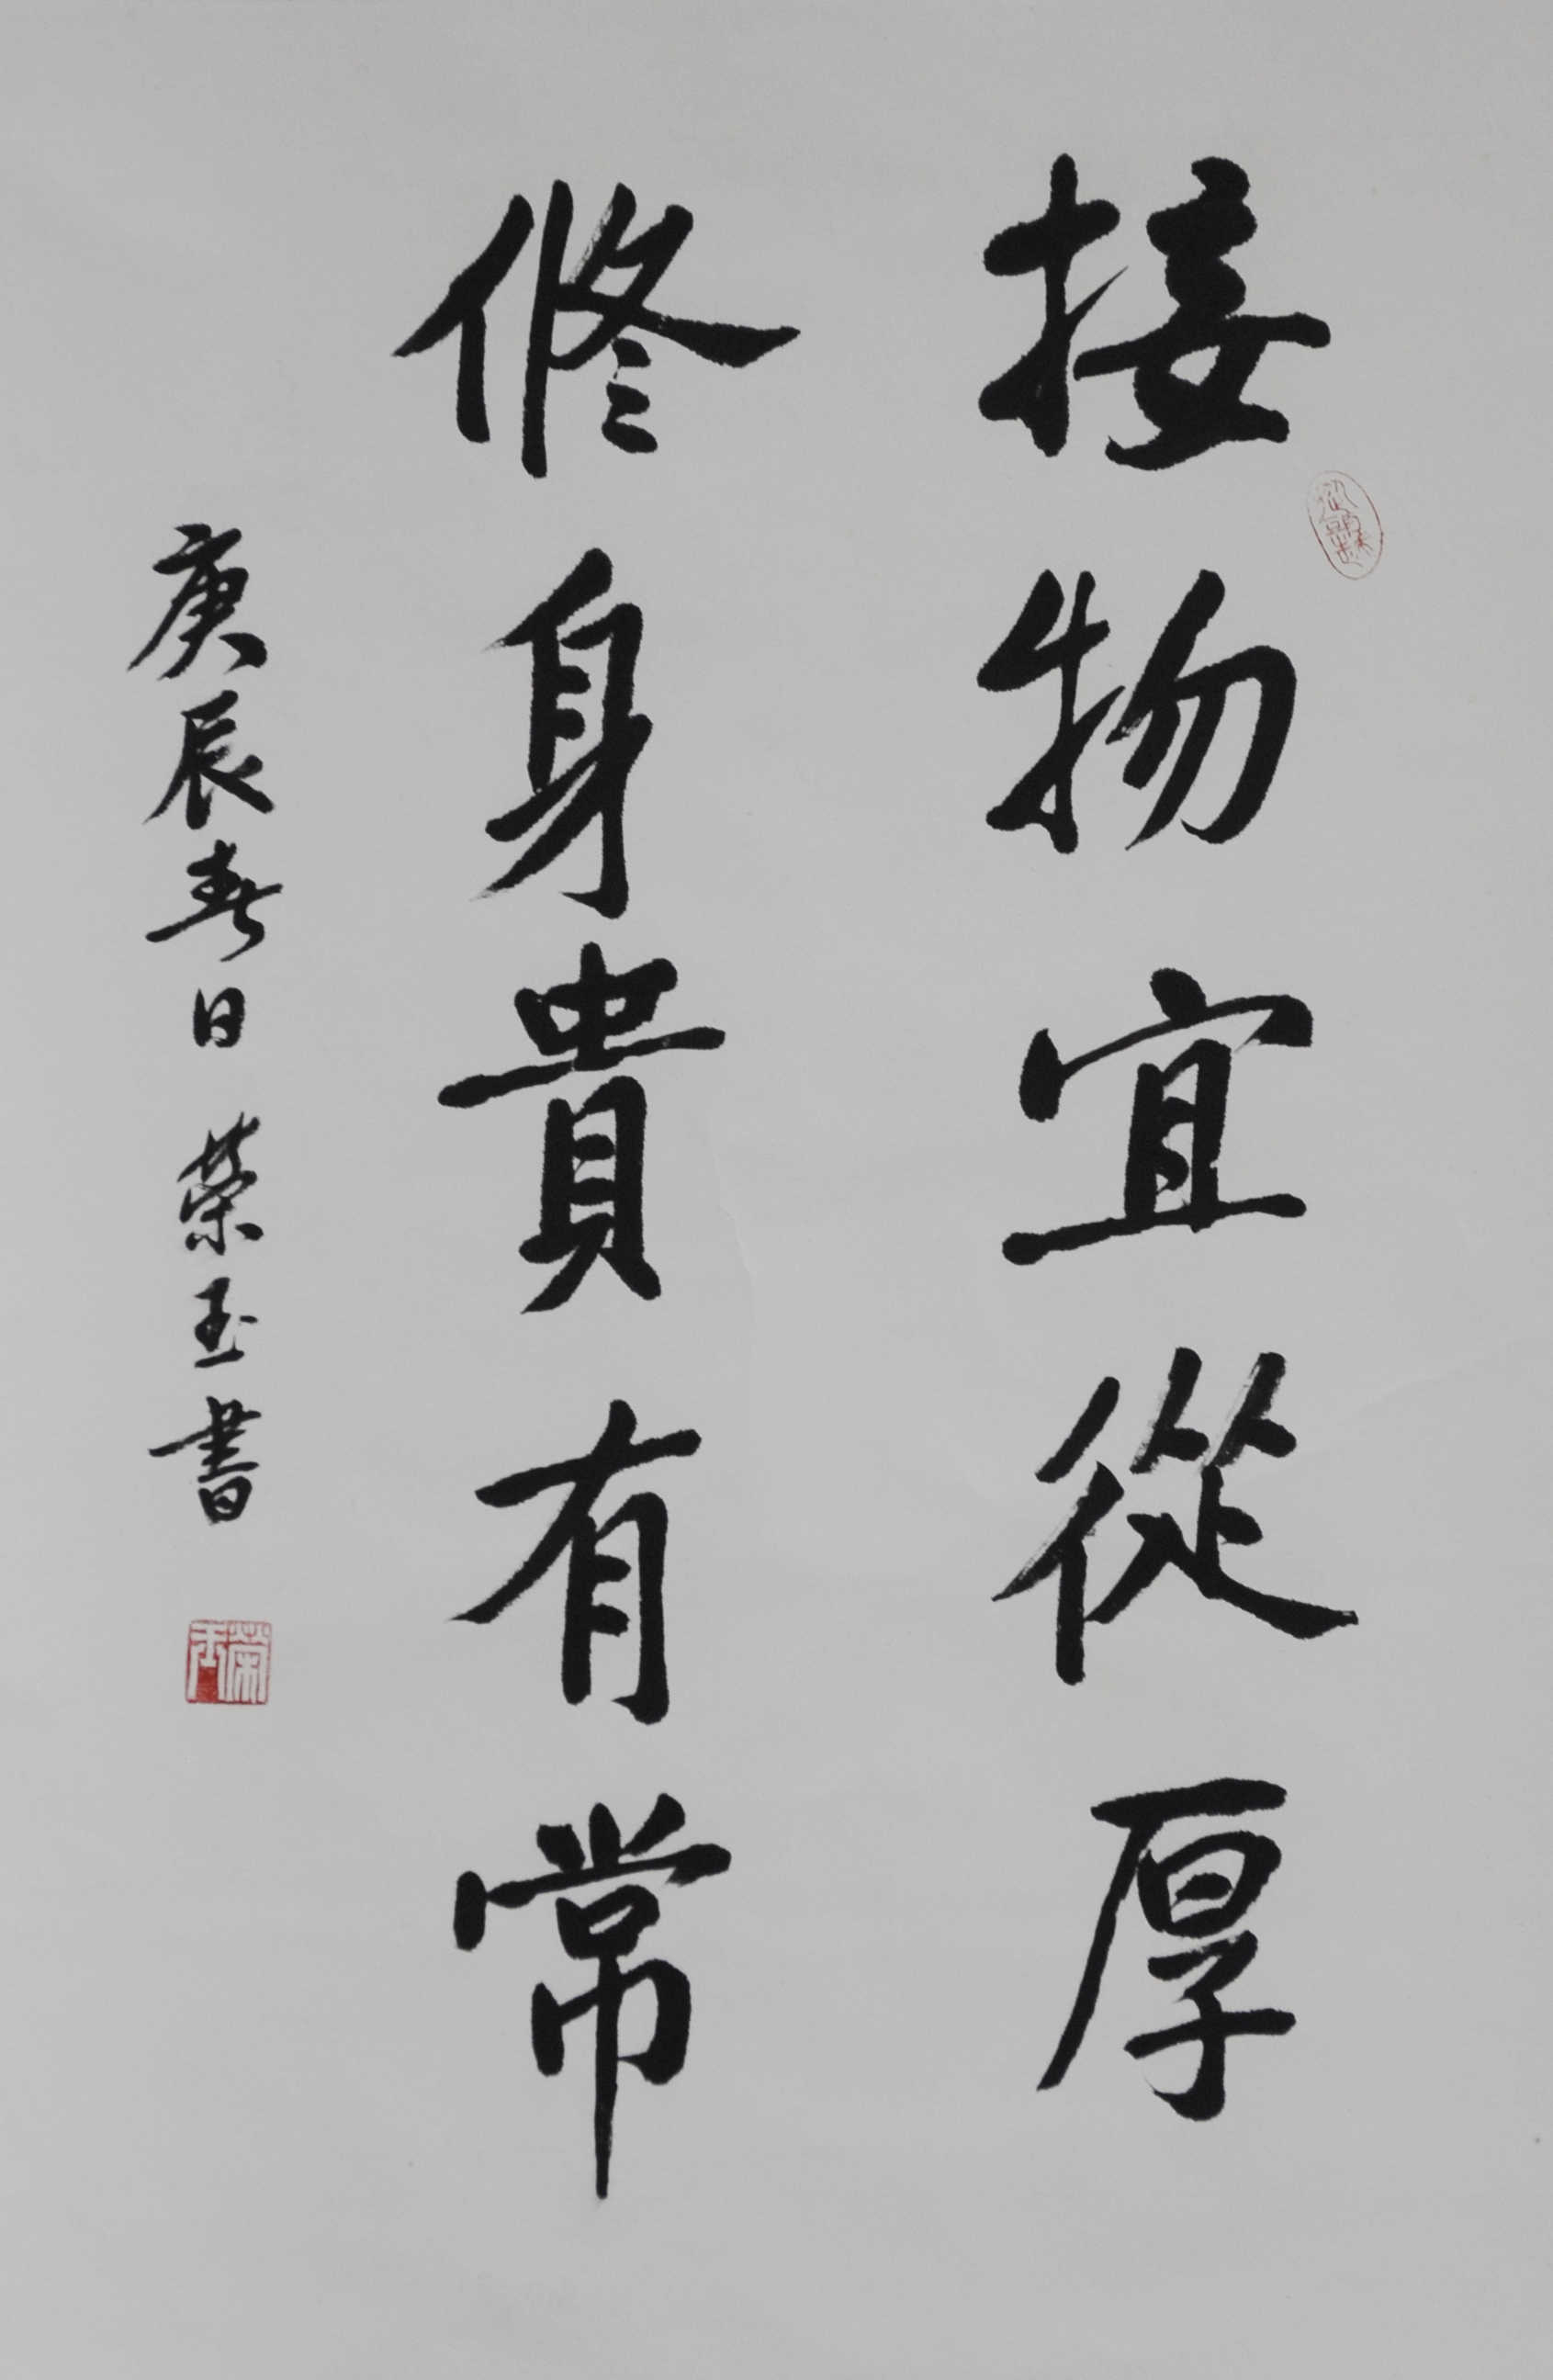 接物宜從厚
修身貴有常
庚辰春日 榮玉書
榮玉